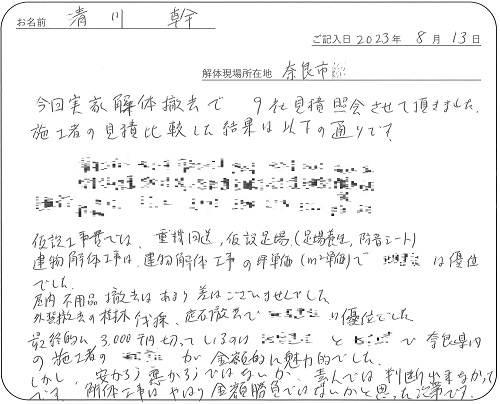 お名前 清川 幹
ご記入日 2023年 8月 13日
解体現場所在地 奈良市
今回実家解体撤去で 9社見積照会させて頂きました。
施工者の見積比較した結果は以下の通りです。
仮設工事費では、重機回送、仮設足場(足場養生、防音シート)
建物解体工事は、建物解体工事の坪単価(m²単価)で は優位
でした。
屋内不用品撤去はあまり差はございませんでした
外構撤去の樹株伐採、庭石撤去で は優位でした
最終的に 3,000千円切っているのは と で奈良県内
の施工者の が金額的に魅力的でした。
しかし、安かろう悪かろうではないか、素人では判断出来なかった
です。解体工事はやはり金額勝負ではないかと思った次第です。